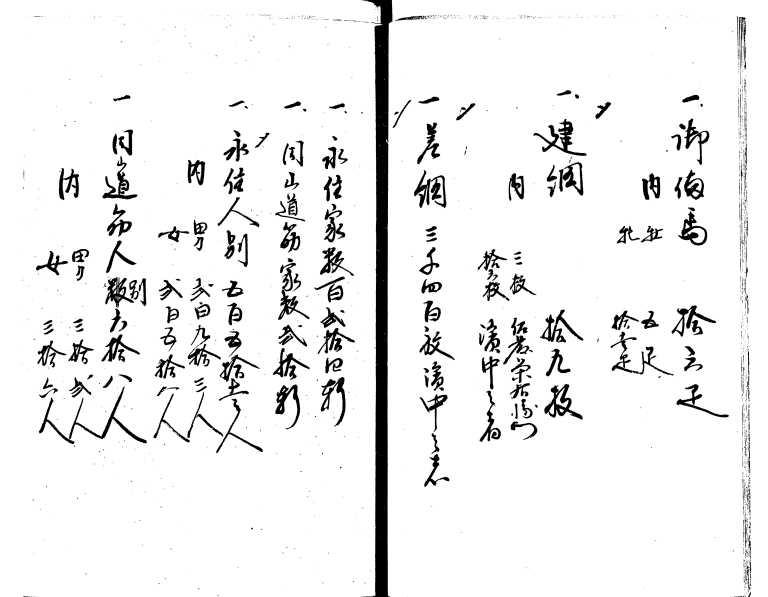 一、御備馬 拾六疋
内 牡 五疋
牝 拾壱疋
一、建網 拾九投
内 三投 佐藤栄右衛門
拾六投 濱中之者
一、差網 三千四百放 濱中之者
一、永住家数 百弐拾四軒
一、同山道筋家数 弐拾軒
一、永住人別 五百五拾壱人
内 男 弐百九拾三人
女 弐百五拾八人
一、同山道筋人別数 六拾八人
内 男 三拾弐人
女 三拾六人